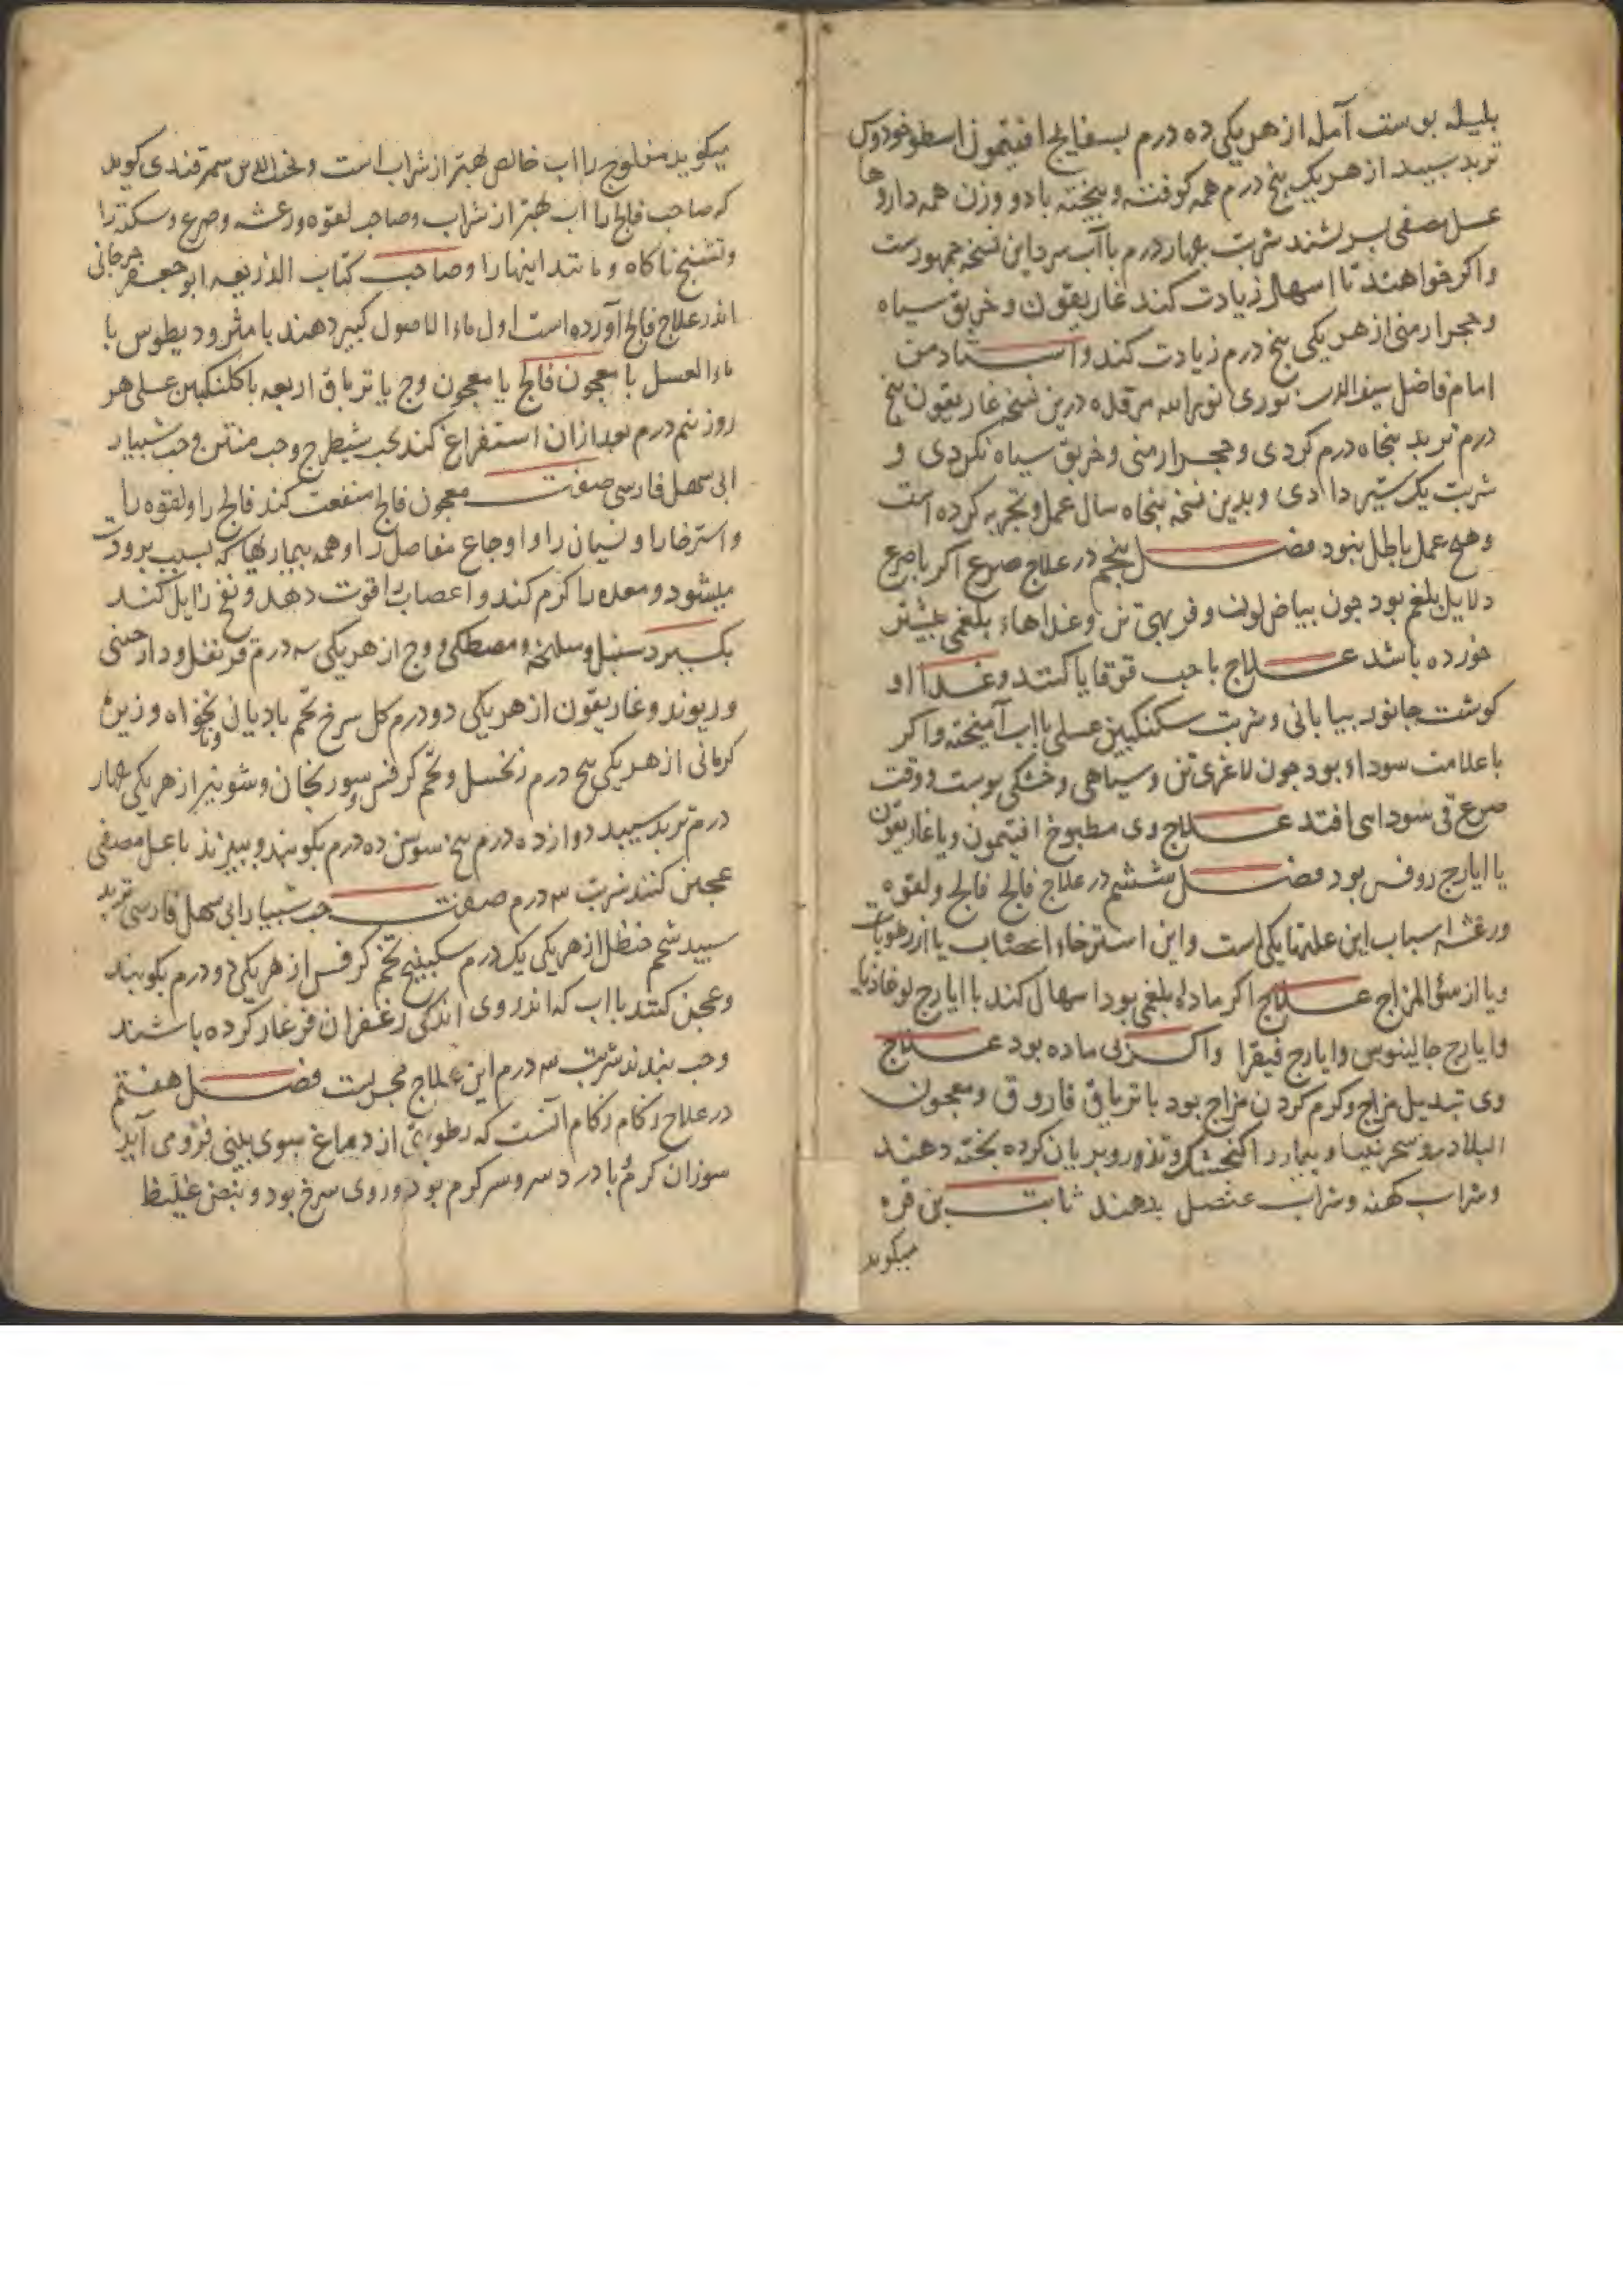 بلیله بوست آمله از هر یکی ده درم بسفایج افتیمون اسطوخودوس
تربد سبید از هر یک پنج درم همه کوفته و بیخته با دو وزن همه داروها
عسل مصفی بسرشند شربت چهار درم با آب سرد این نسخه جمهورست
و اکر خواهند تا اسهال زیادت کند غاریقون و خربق سیاه
و حجر ارمنی از هر یکی پنج درم زیادت کند و استاد من
امام فاضل سیف الدین نوری نور الله مرقده درین نسخه غاریقون پنج
درم تربد پنجاه درم کردی و حجر ارمنی و خربق سیاه نکردی و
شربت یک ستیر دادی و بدین نسخه پنجاه سال عمل و تجربه کرده است
و هیچ عمل باطل نبود فصل پنجم در علاج صرع اکر با صرع
دلایل بلغم بود جون بیاض لون و فربهی تن و غذاهاء بلغمی بیشتر
خورده باشد علاج با حب قوقایا کنند و غذاا او
کوشت جانور بیابانی و شربت سکنکبین عسلی با اب آمیخته و اکر
با علامت سوداء بود جون لاغری تن و سیاهی و خشکی بوست و وقت
صرع قی سوداسی افتد علاج وی مطبوخ افتیمون و یا غاریقون
یا ایارج روفس بود فصل ششم در علاج فالج فالج و لقوه
و رعشه اسباب این علتها یکی است و این استرخاء اعصاب یا از رطوبات
و یا از سئ المزاج علاج اکر ماده بلغمی بود اسهال کند با ایارج لوغاذیا
و ایارج جالینوس و ایارج فیقرا و اکر بی ماده بود علاج
وی تبدیل مزاج و کرم کردن مزاج بود با تریاق فاروق و معجون
البلادر و سجرنیسا و بیمار را کنجشک و تذرو بریان کرده بخته دهند
و شراب کهنه و شراب عنصل بدهند ثابت بن قره
میکوید
میکوید مفلوج را اب خالص بهتر از شراب است و نجد الدین سمرقندی کوید
که صاحب فالج را اب بهتر از شراب و صاحب لقوه و رعشه و صرع و سکته را
و تشنج ناکاه و مانند اینها را و صاحب کتاب الذریعه ابو جعفر جرجانی
اندر علاج فالج آورده است اول ماء الاصول کبیر دهند با مثرودیطوس یا
ماء العسل با معجون فالج یا معجون وج یا تریاق اربعه با کلنکبین عسلی هر
روز نیم درم بعد از ان استفراغ کند بحب شیطرج و حب منتن و حب شبیار
ابی سهل فارسی صفت معجون فالج منفعت کند فالج را و لقوه را
و استرخا را و نسیان را و اوجاع مفاصل را و همه بیماریها که بسبب برودت
میشود و معده را کرم کند و اعصاب را قوت دهد و نفخ زایل کند
بکیرد سنبل و سلیخه و مصطکی و وج از هر یکی سه درم قرنفل و دارجینی
و ریوند و غاریقون از هر یکی دو درم کل سرخ تخم بادیان نانخواه و زیرهٔ
کرمانی از هر یکی پنج درم زنجبیل و تخم کرفس و سورنجان و شونیز از هر یکی چهار
درم تربد سبید دوازده درم بیخ سوسن ده درم بکوبند و ببیزند با عسل مصفی
عجین کنند شربت سه درم صفت حب شبیار ابی سهل فارسی تربد
سبید شحم حنظل از هر یکی یک درم سکبینج تخم کرفس از هر یکی دو درم بکوبند
و عجین کنند با اب که اندر وی اندکی زعفران فرغار کرده باشند
و حب بندند شربت سه درم این علاج مجربست فصل هفتم
در علاج زکام زکام آنست که رطوبتی از دماغ سوی بینی فرومی آید
سوزان کرم با درد سر و سر کرم بود و روی سرخ بود و نبض غلیظ